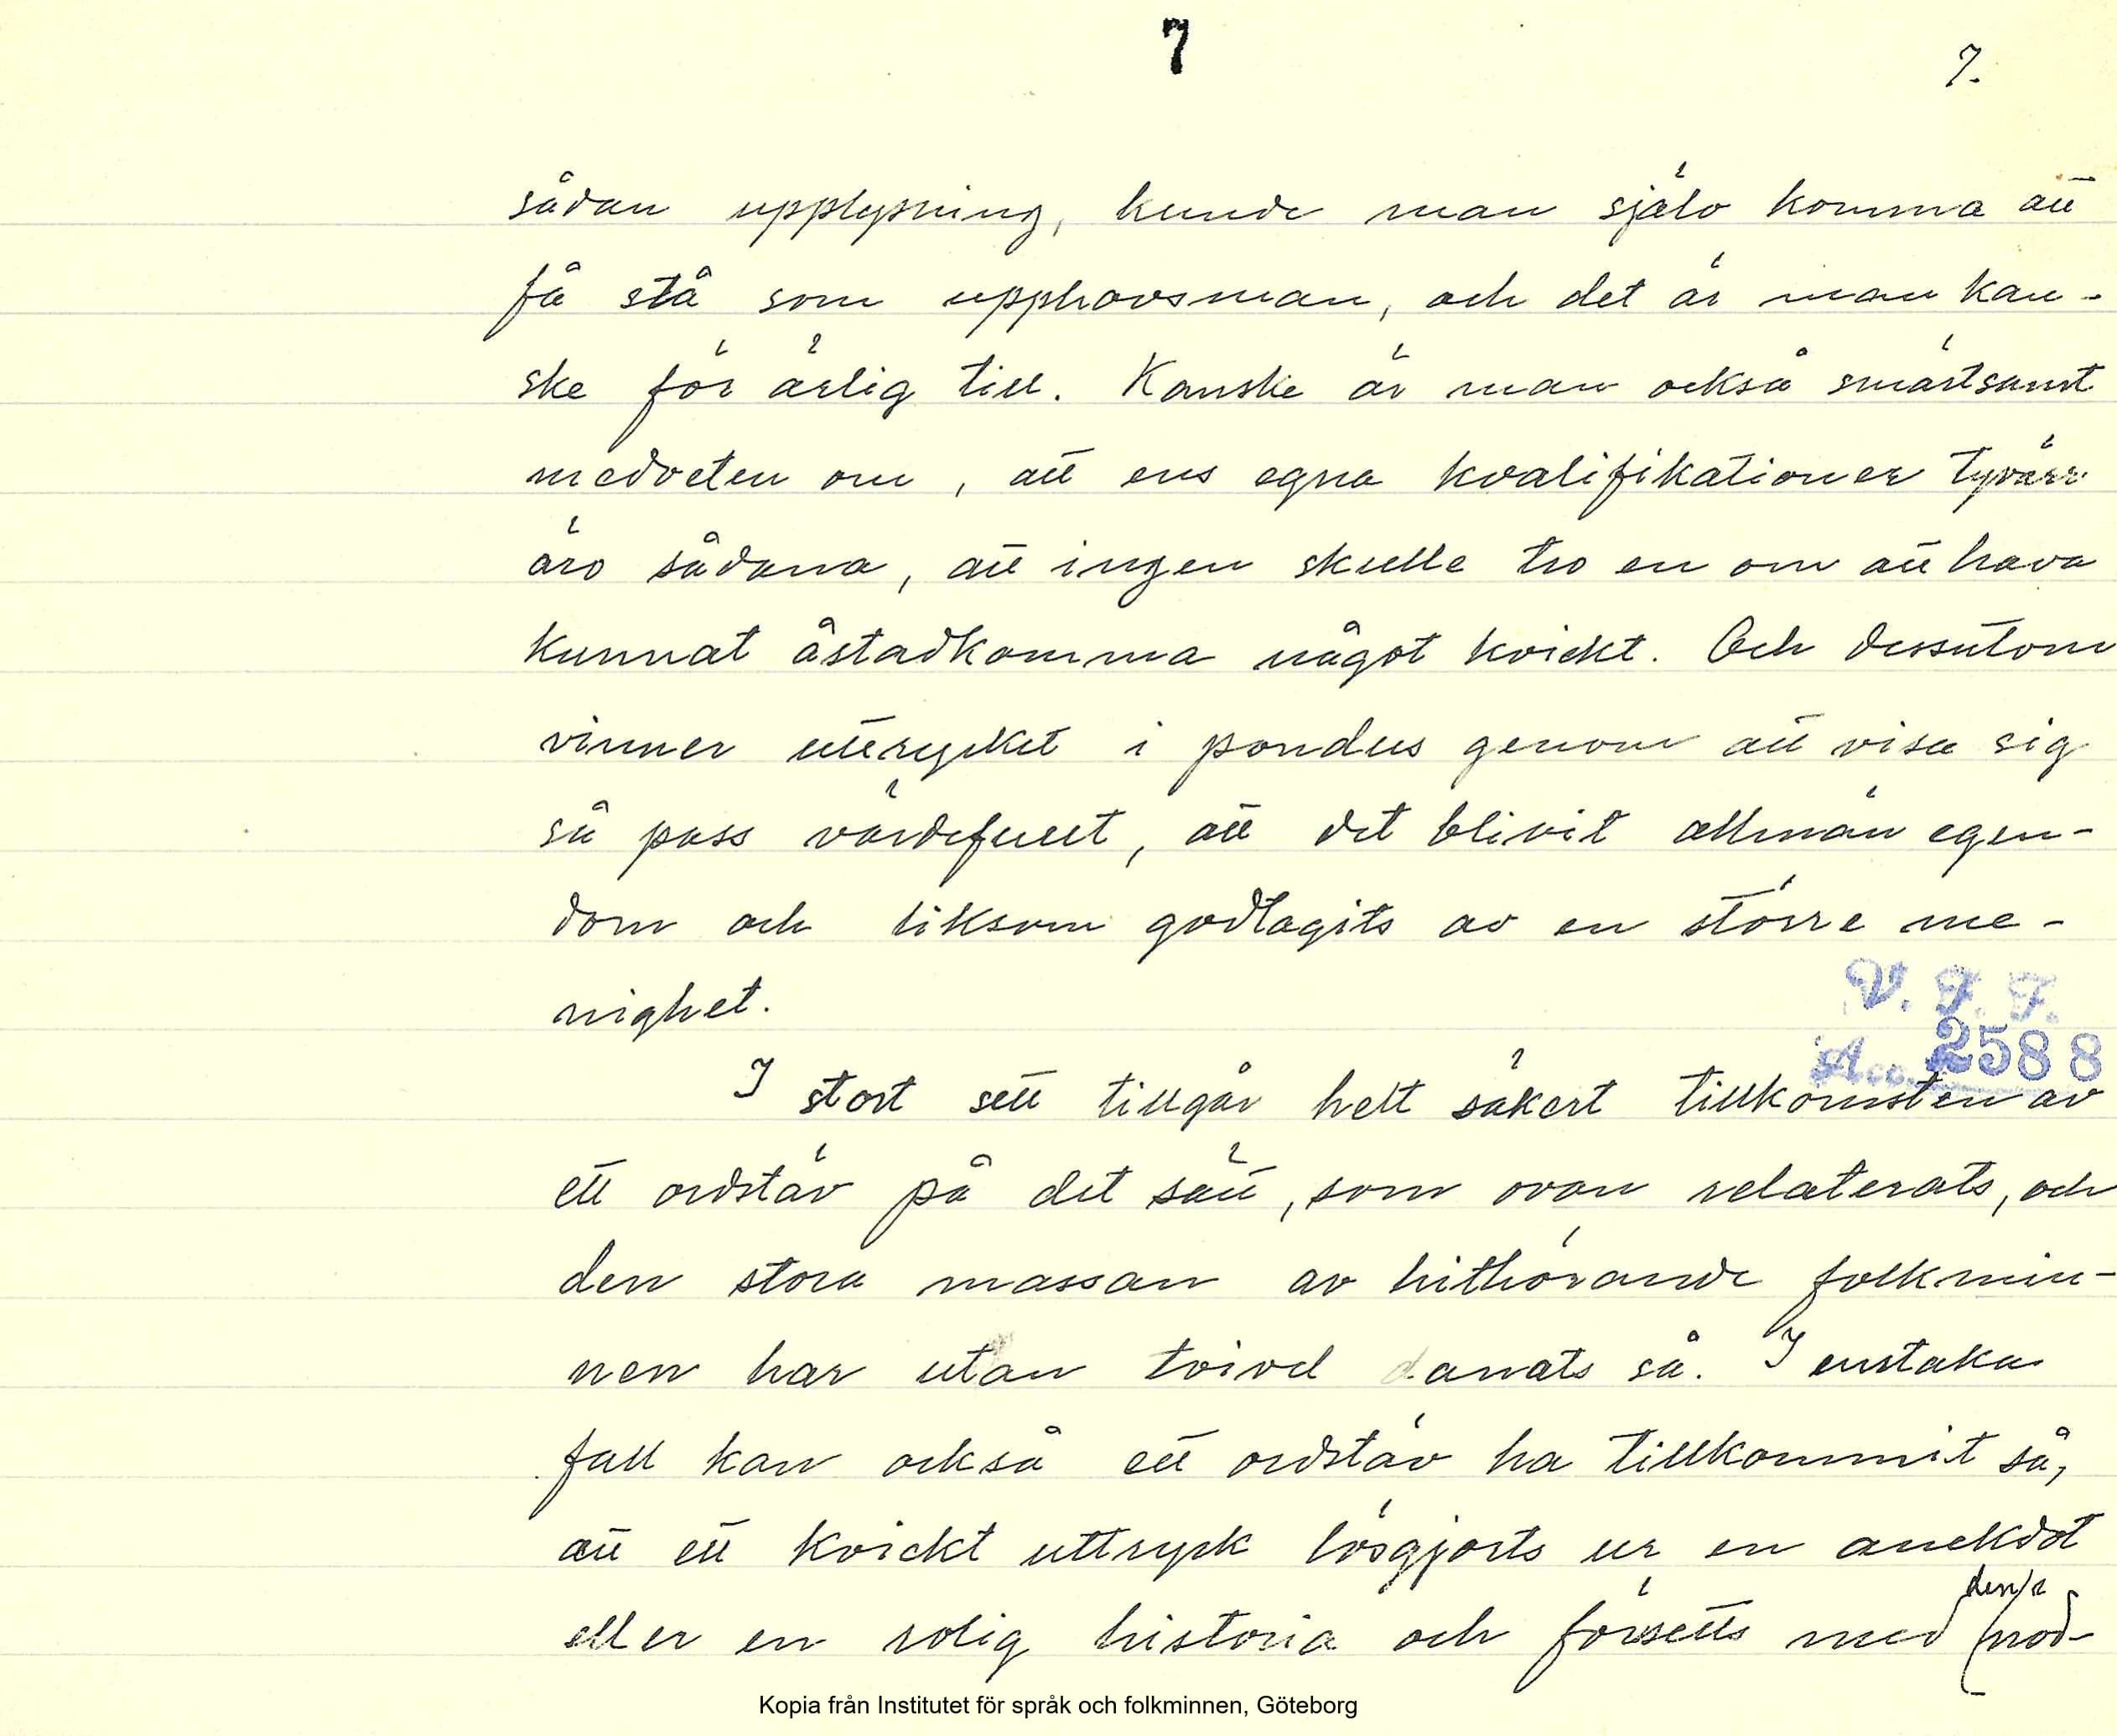 7
7.
sådan upplysning, kunde man själv komma att
få stå som upphovsman, och det är man kan-
ske för ärlig till. Kanske är man också smärtsamt
medveten om, att ens egna kvalifikationer tyvärr
äro sådana, att ingen skulle tro en om att hava
kunnat åstadkomma något kvickt. Och dessutom
vinner uttrycket i pondus genom att visa sig
så pass värdefullt, att det blivit allmän egen-
dom och liksom godtagits av en större me-
nighet.
V. F. F.
Acc. 2588
I stort sett tillgår helt säkert tillkomsten av
ett ordstäv på det sätt, som ovan relaterats, och
den stora massan av hithörande folkmin-
nen har utan tvivel danats så. I enstaka
fall kan också ett ordstäv ha tillkommit så,
att ett kvickt uttryck lösgjorts ur en anekdot
den
eller en rolig historia och försetts med nöd-
Kopia från Institutet för språk och folkminnen, Göteborg